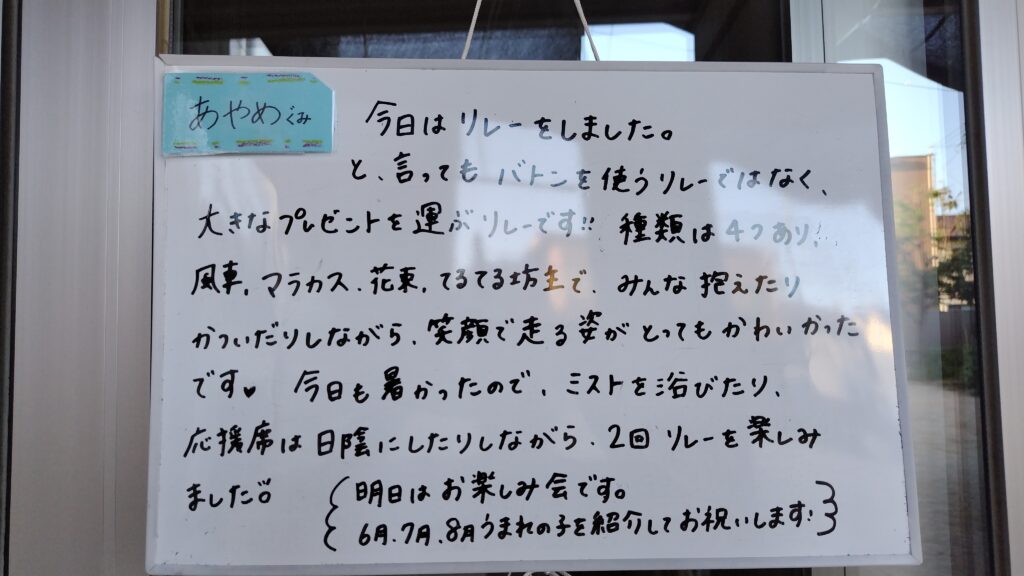 あやめぐみ
今日はリレーをしました。
と、言っても バトンを使うリレーではなく、
大きなプレゼントを運ぶリレーです!! 種類は4つあり、
風車、マラカス、花束、てるてる坊主で、みんな抱えたり
かついだりしながら、笑顔で走る姿がとってもかわいかった
です♥ 今日も暑かったので、ミストを浴びたり、
応援席は日陰にしたりしながら、2回 リレーを楽しみ
ました!!
明日はお楽しみ会です。
6月、7月、8月うまれの子を紹介してお祝いします!